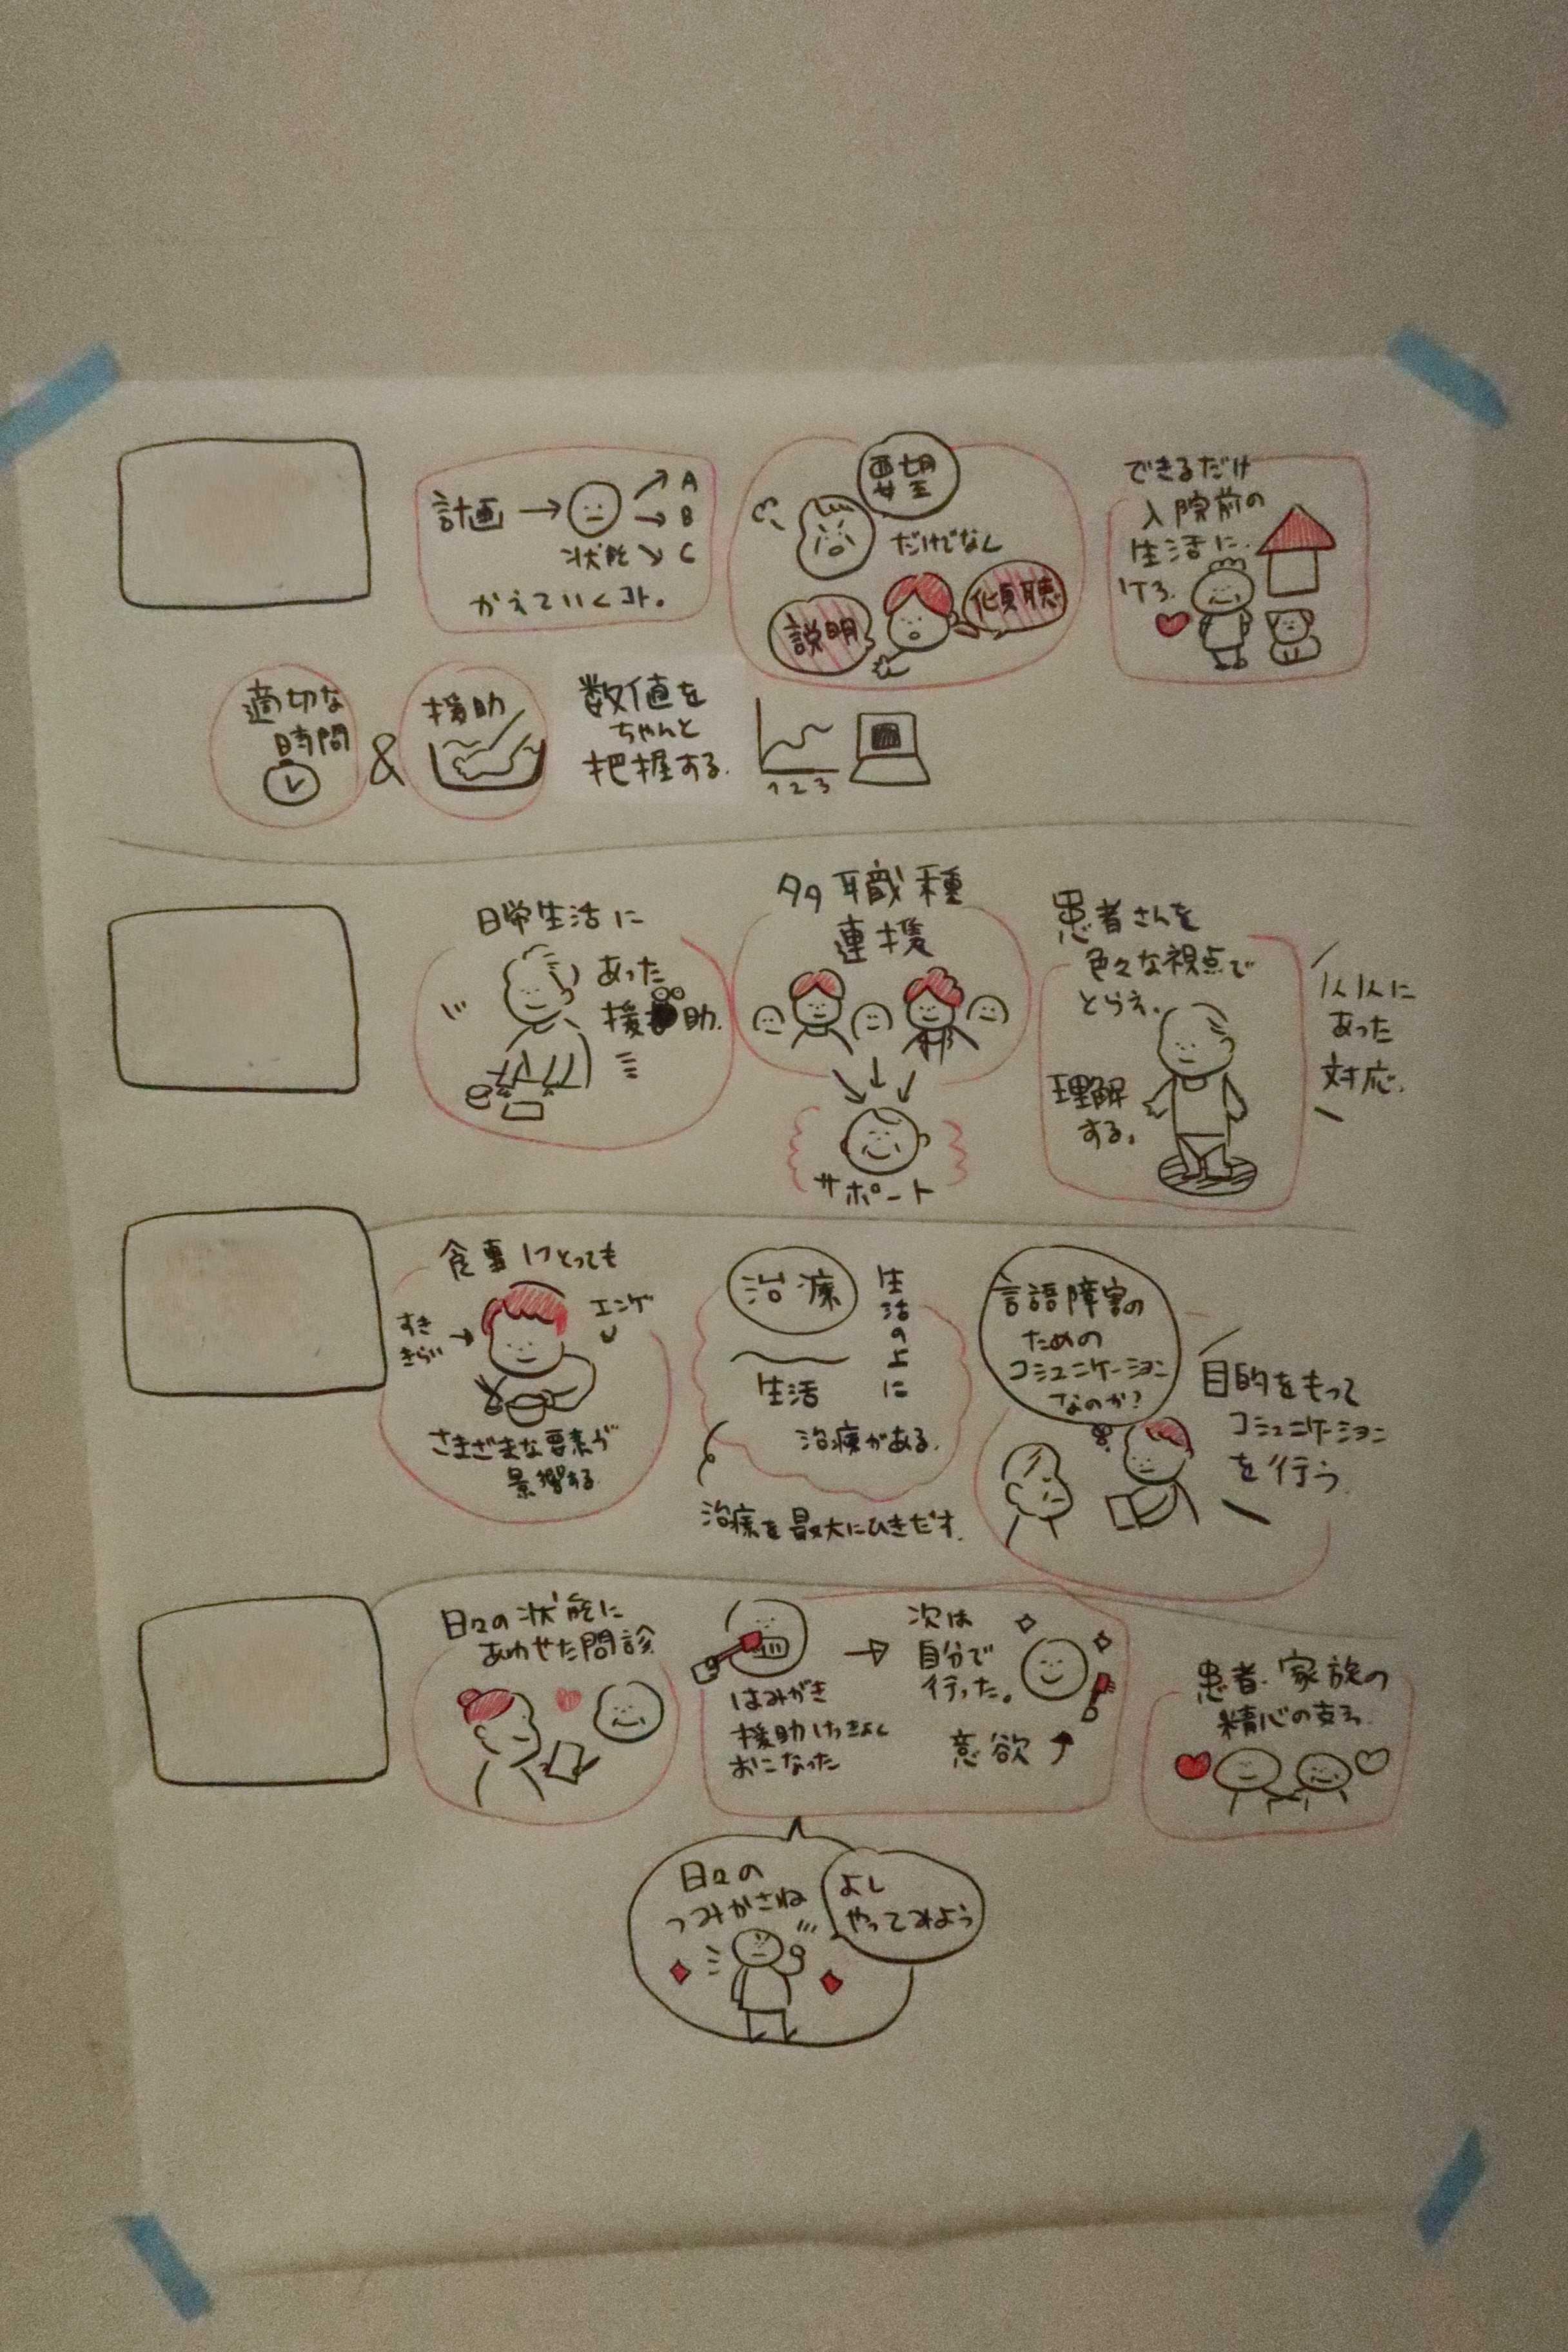 計画
A
B
C
状態
かえていくコト。
要望
だけでなく
説明
傾聴
できるだけ
入院前の
生活に
適切な
時間
&
援助
数値を
ちゃんと
把握する.
1 2 3
日常生活に
あった
援助.
多職種
連携
サポート
患者さんを
色々な視点で
とらえ、
理解
する。
人人に
あった
対応.
食事
すき
きらい
エンゲ
さまざまな要素が
影響する
治療
生活
生活の上に
治療がある.
治療を最大にひきだす.
言語障害の
ための
コミュニケーション
なのか?
目的をもって
コミュニケーション
を行う.
日々の状態に
あわせた問診
はみがき
援助
おこなった
次は
自分で
行った。
意欲
患者・家族の
精心の支え.
日々の
つみかさね
よし
やってみよう